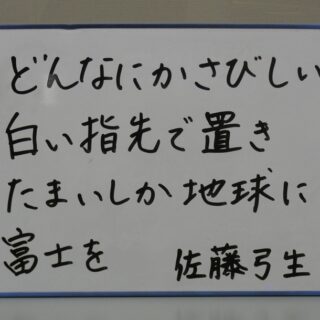 どんなにかさびしい
白い指先で置き
たまいしか地球に
富士を　佐藤弓生